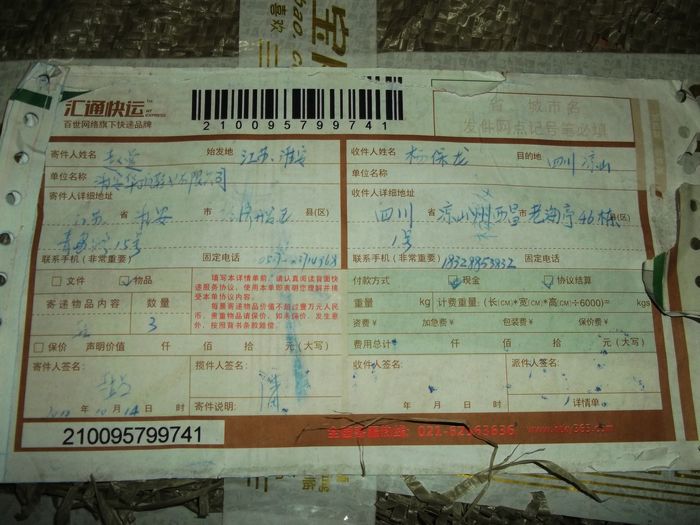 汇通快运
百世网络旗下快递品牌
210095799741
省 城市名
发件网点记号笔必填
寄件人姓名 始发地 江苏.淮安
收件人姓名 杨保龙 目的地 四川凉山
单位名称 有限公司
单位名称
寄件人详细地址
收件人详细地址
江苏 省 淮安 市 县(区)
四川 省 凉山州西昌老海亭46栋
15号
1号
联系手机(非常重要) 固定电话
联系手机(非常重要) 18328853832 固定电话
文件 物品
填写本详情单前,请认真阅读背面快
递服务协议,使用本单即表明您理解并接
受本单协议内容。
每票寄递物品价值不超过壹万元人民
币,贵重物品请保价,如未保价,发生意
外,按照背书条款赔偿。
寄递物品内容 数量
3
付款方式 现金 协议结算
重量 kg 计费重量:(长(CM)*宽(CM)*高(CM)÷6000)= kgs
资费¥ 加急费¥ 包装费¥ 保价费¥
保价 声明价值 仟 佰 拾 元(大写)
费用总计¥ 仟 佰 拾 元(大写)
寄件人签名: 揽件人签名:
收件人签名: 派件人签名:
10月14日 时 寄件说明:
年 月 日 时 详情单:
210095799741
全国服务热线: 021-62963636 www.htky365.com